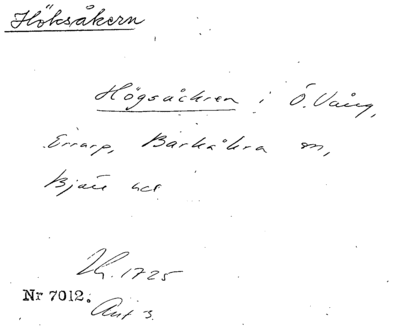 Höksåkern
Högsåckren i Ö. Vång,
Errarp, Barkåkra sn,
Bjäre hd
Lh. 1725
Nr 7012.
Akt 3.